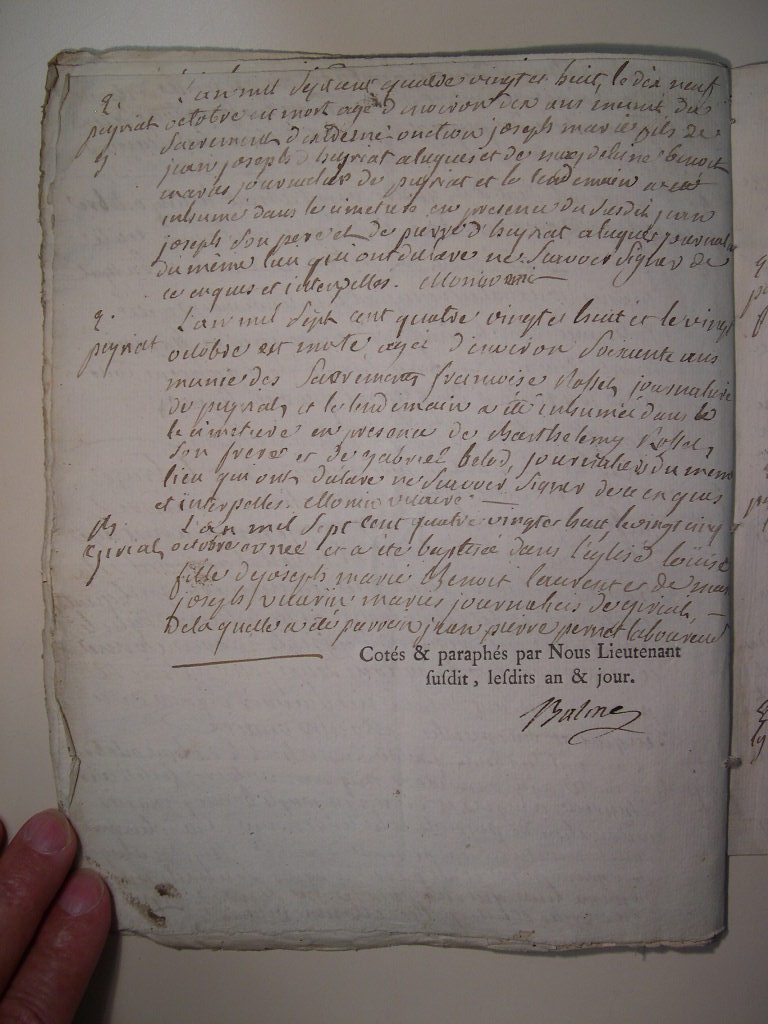 q.
peyriat
L'an mil sept cent quatre vingtes huit, le dix neuf
octobre est mort agé d'environ dix ans munit du
Sacrement d'extreme-onction joseph marie fils de
jean joseph d'heyriat aluques et de magdelaine Benoit
maries journalier de peyriat et le lendemain a eté
inhumé dans le cimetiere en presence du susdit jean
joseph son pere et de pierre d'heyriat aluques journalier
du même lieu qui ont declare ne scavoir signer de
ce enquis et interpelles.
q.
peyriat
L'an mil sept cent quatre vingtes huit et le vingt
octobre est morte agéé d'environ soixante ans
munie des Sacrements francoise Rosset, journaliere
de peyriat, et le lendemain a été inhumée dans le
le cimetiere en presence de Barthelemy Rosset,
son frere et de gabriel belod, journalier du meme
lieu qui ont declare ne scavoir signer de ce enquis
et interpellés. Monin vicaire
L'an mil sept cent quatre vingtes huit le vingt cinq
octobre est née et a été baptisée dans l'église Louise
fille de joseph marie Benoit laurent et de marie
joseph vuarin maries journaliers de giriat,
De laquelle a été parrein jean pierre pernet laboureur
Cotés & paraphés par Nous Lieutenant
susdit, lesdits an & jour.
Balme